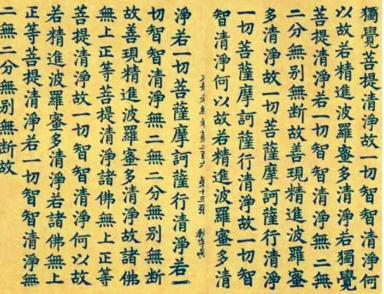 獨覺菩提清淨故一切智智清淨何
以故若精進波羅蜜多清淨若獨覺
菩提清淨若一切智智清淨無二無
二分無別無斷故善現精進波羅蜜
多清淨故一切菩薩摩訶薩行清淨
一切菩薩摩訶薩行清淨故一切智
智清淨何以故若精進波羅蜜多清
第十三張
淨若一切菩薩摩訶薩行清淨若一
切智智清淨無二無二分無別無斷
故善現精進波羅蜜多清淨故諸佛
無上正等菩提清淨諸佛無上正等
菩提清淨故一切智智清淨何以故
若精進波羅蜜多清淨若諸佛無上
正等菩提清淨若一切智智清淨無
二無二分無別無斷故